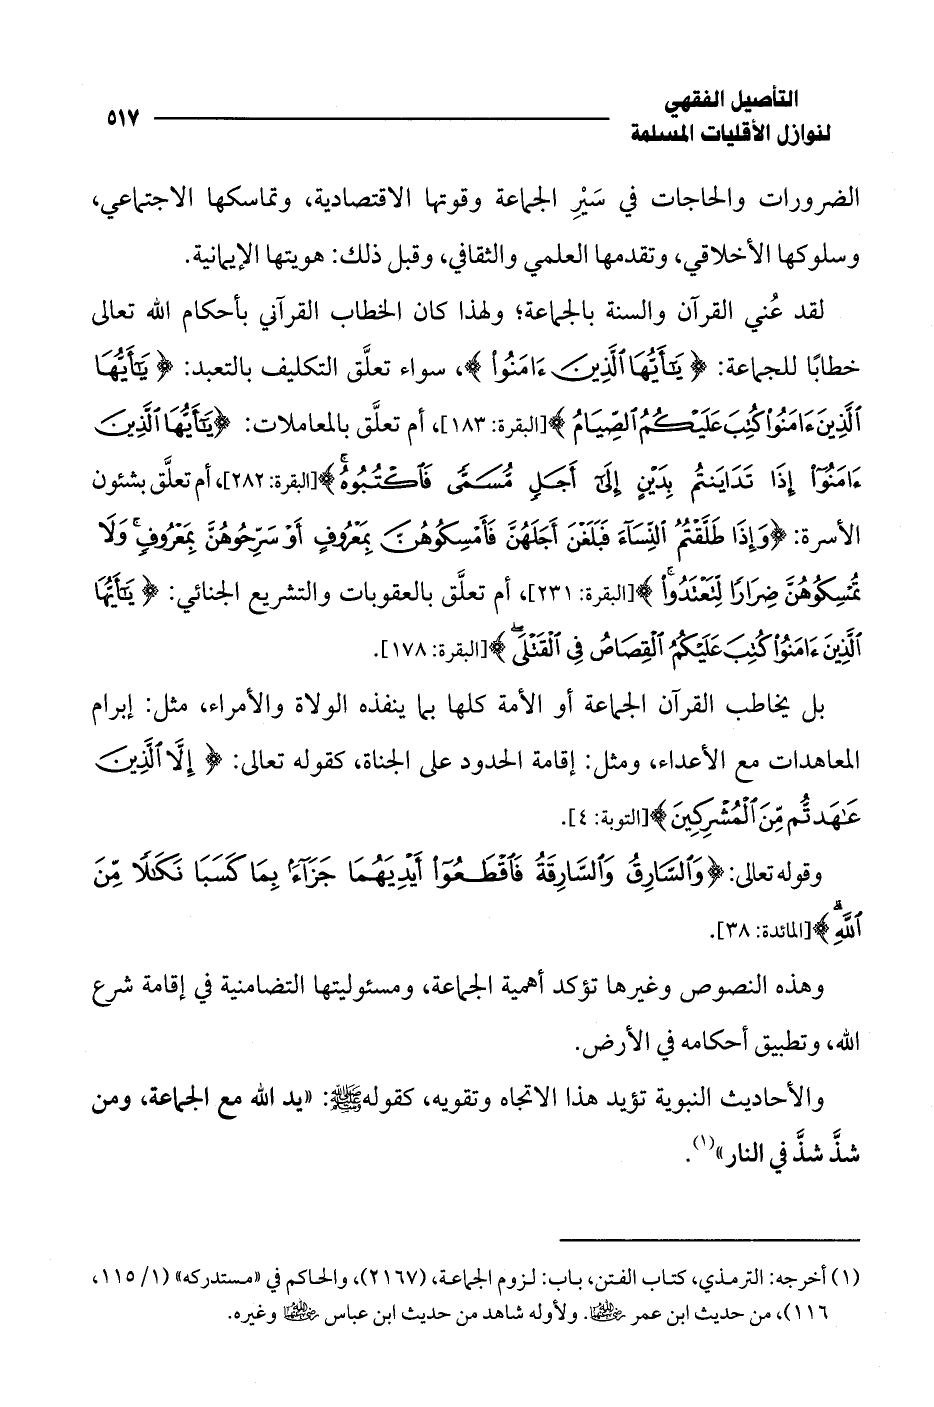 التأصيل الفقهي
لنوازل الأقليات المسلمة
٥١٧
الضرورات والحاجات في سَيْرِ الجماعة وقوتها الاقتصادية، وتماسكها الاجتماعي،
وسلوكها الأخلاقي، وتقدمها العلمي والثقافي، وقبل ذلك: هويتها الإيمانية.
لقد عُني القرآن والسنة بالجماعة؛ ولهذا كان الخطاب القرآني بأحكام الله تعالى
خطابًا للجماعة: ﴿ يَٰٓأَيُّهَا ٱلَّذِينَ ءَامَنُوا۟ ﴾، سواء تعلَّق التكليف بالتعبد: ﴿ يَٰٓأَيُّهَا
ٱلَّذِينَ ءَامَنُوا۟ كُتِبَ عَلَيْكُمُ ٱلصِّيَامُ ﴾[البقرة: ١٨٣]، أم تعلَّق بالمعاملات: ﴿يَٰٓأَيُّهَا ٱلَّذِينَ
ءَامَنُوٓا۟ إِذَا تَدَايَنتُم بِدَيْنٍ إِلَىٰٓ أَجَلٍ مُّسَمًّى فَٱكْتُبُوهُ ۚ﴾[البقرة: ٢٨٢]، أم تعلَّق بشئون
الأسرة: ﴿وَإِذَا طَلَّقْتُمُ ٱلنِّسَآءَ فَبَلَغْنَ أَجَلَهُنَّ فَأَمْسِكُوهُنَّ بِمَعْرُوفٍ أَوْ سَرِّحُوهُنَّ بِمَعْرُوفٍ ۚ وَلَا
تُمْسِكُوهُنَّ ضِرَارًا لِّتَعْتَدُوا۟ ۚ ﴾[البقرة: ٢٣١]، أم تعلَّق بالعقوبات والتشريع الجنائي: ﴿ يَٰٓأَيُّهَا
ٱلَّذِينَ ءَامَنُوا۟ كُتِبَ عَلَيْكُمُ ٱلْقِصَاصُ فِى ٱلْقَتْلَى ۖ ﴾[البقرة: ١٧٨].
بل يخاطب القرآن الجماعة أو الأمة كلها بما ينفذه الولاة والأمراء، مثل: إبرام
المعاهدات مع الأعداء، ومثل: إقامة الحدود على الجناة، كقوله تعالى: ﴿ إِلَّا ٱلَّذِينَ
عَٰهَدتُّم مِّنَ ٱلْمُشْرِكِينَ ﴾[التوبة: ٤].
وقوله تعالى: ﴿وَٱلسَّارِقُ وَٱلسَّارِقَةُ فَٱقْطَعُوٓا۟ أَيْدِيَهُمَا جَزَآءًۢ بِمَا كَسَبَا نَكَٰلًا مِّنَ
ٱللَّهِ ۗ﴾[المائدة: ٣٨].
وهذه النصوص وغيرها تؤكد أهمية الجماعة، ومسئوليتها التضامنية في إقامة شرع
الله، وتطبيق أحكامه في الأرض.
والأحاديث النبوية تؤيد هذا الاتجاه وتقويه، كقوله ﷺ: «يد الله مع الجماعة، ومن
شذَّ شذَّ في النار»(١).
(١) أخرجه: الترمذي، كتاب الفتن، باب: لزوم الجماعة، (٢١٦٧)، والحاكم في «مستدركه» (١/ ١١٥،
١١٦)، من حديث ابن عمر رضي الله عنهما. ولأوله شاهد من حديث ابن عباس رضي الله عنهما وغيره.